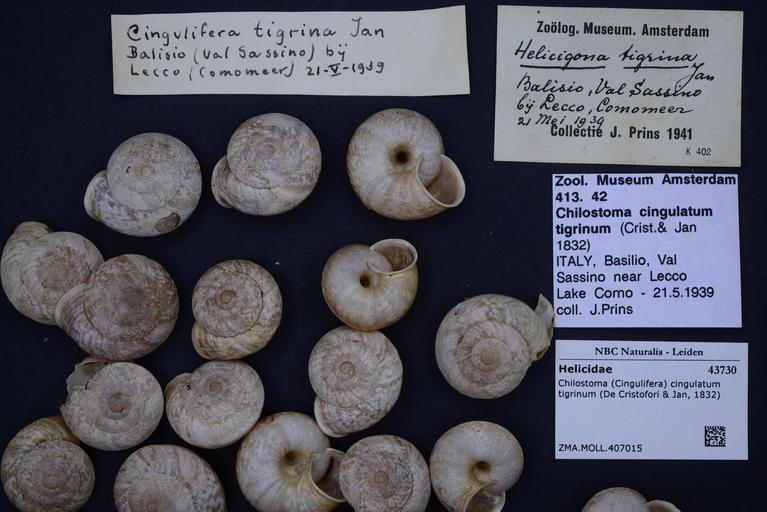 Cingulifera tigrina Jan
Balisio (Val Sassino) bij
Lecco (Comomeer) 21-V-1939
Zoölog. Museum. Amsterdam
Helicigona tigrina
Jan
Balisio, Val Sassino
bij Lecco, Comomeer
21 Mei 1939
Collectie J. Prins 1941
K 402
Zool. Museum Amsterdam
413. 42
Chilostoma cingulatum
tigrinum (Crist.& Jan
1832)
ITALY, Basilio, Val
Sassino near Lecco
Lake Como - 21.5.1939
coll. J.Prins
NBC Naturalis - Leiden
Helicidae 43730
Chilostoma (Cingulifera) cingulatum
tigrinum (De Cristofori & Jan, 1832)
ZMA.MOLL.407015